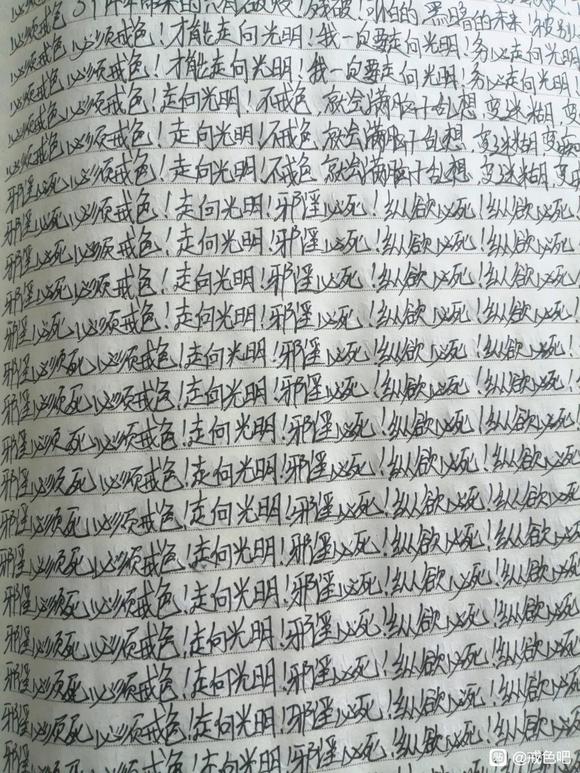 必须戒色!才能走向光明!我一定要走向光明!务必走向光明
必须戒色!才能走向光明!我一定要走向光明!务必走向光明
必须戒色!走向光明!不戒色,就会满脑子乱想,变迷糊,变
必须戒色!走向光明!不戒色,就会满脑子乱想,变迷糊,变
必须戒色!走向光明!不戒色,就会满脑子乱想,变迷糊,变
邪淫必死!必须戒色!走向光明!邪淫必死!纵欲必死!纵欲必死!
邪淫必死!必须戒色!走向光明!邪淫必死!纵欲必死!纵欲必死!
邪淫必死!必须戒色!走向光明!邪淫必死!纵欲必死!纵欲必死!
邪淫必死!必须戒色!走向光明!邪淫必死!纵欲必死!纵欲必死!
邪淫必须死!必须戒色!走向光明!邪淫必死!纵欲必死!纵欲必死!
邪淫必须死!必须戒色!走向光明!邪淫必死!纵欲必死!纵欲必死!
邪淫必须死!必须戒色!走向光明!邪淫必死!纵欲必死!纵欲必死!
邪淫必须死!必须戒色!走向光明!邪淫必死!纵欲必死!纵欲必死!
邪淫必须死!必须戒色!走向光明!邪淫必死!纵欲必死!纵欲必死
邪淫必须死!必须戒色!走向光明!邪淫必死!纵欲必死!纵欲必死
邪淫必须死!必须戒色!走向光明!邪淫必死!纵欲必死!纵欲必死
邪淫必须死!必须戒色!走向光明!邪淫必死!纵欲必死!纵欲必死
邪淫必须死!必须戒色!走向光明!邪淫必死!纵欲必死!纵欲必死
邪淫必须死!必须戒色!走向光明!邪淫必死!纵欲必死!纵欲必死
邪淫必须死!必须戒色!走向光明!邪淫必死!纵欲必死
@戒色吧